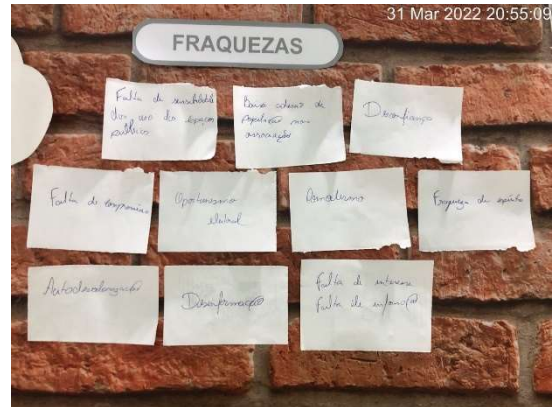 31 Mar 2022 20:55:09
FRAQUEZAS
Falta de sensibilida
dos uso dos espaços
públicos
Baixa adesão da
População nas
associações
Desconfiança
Falta de compromisso
Oportunismo
eleitoral
Comodismo
Fraqueza de espírito
Autodesvalorização
Desinformação
Falta de interesse
Falta de